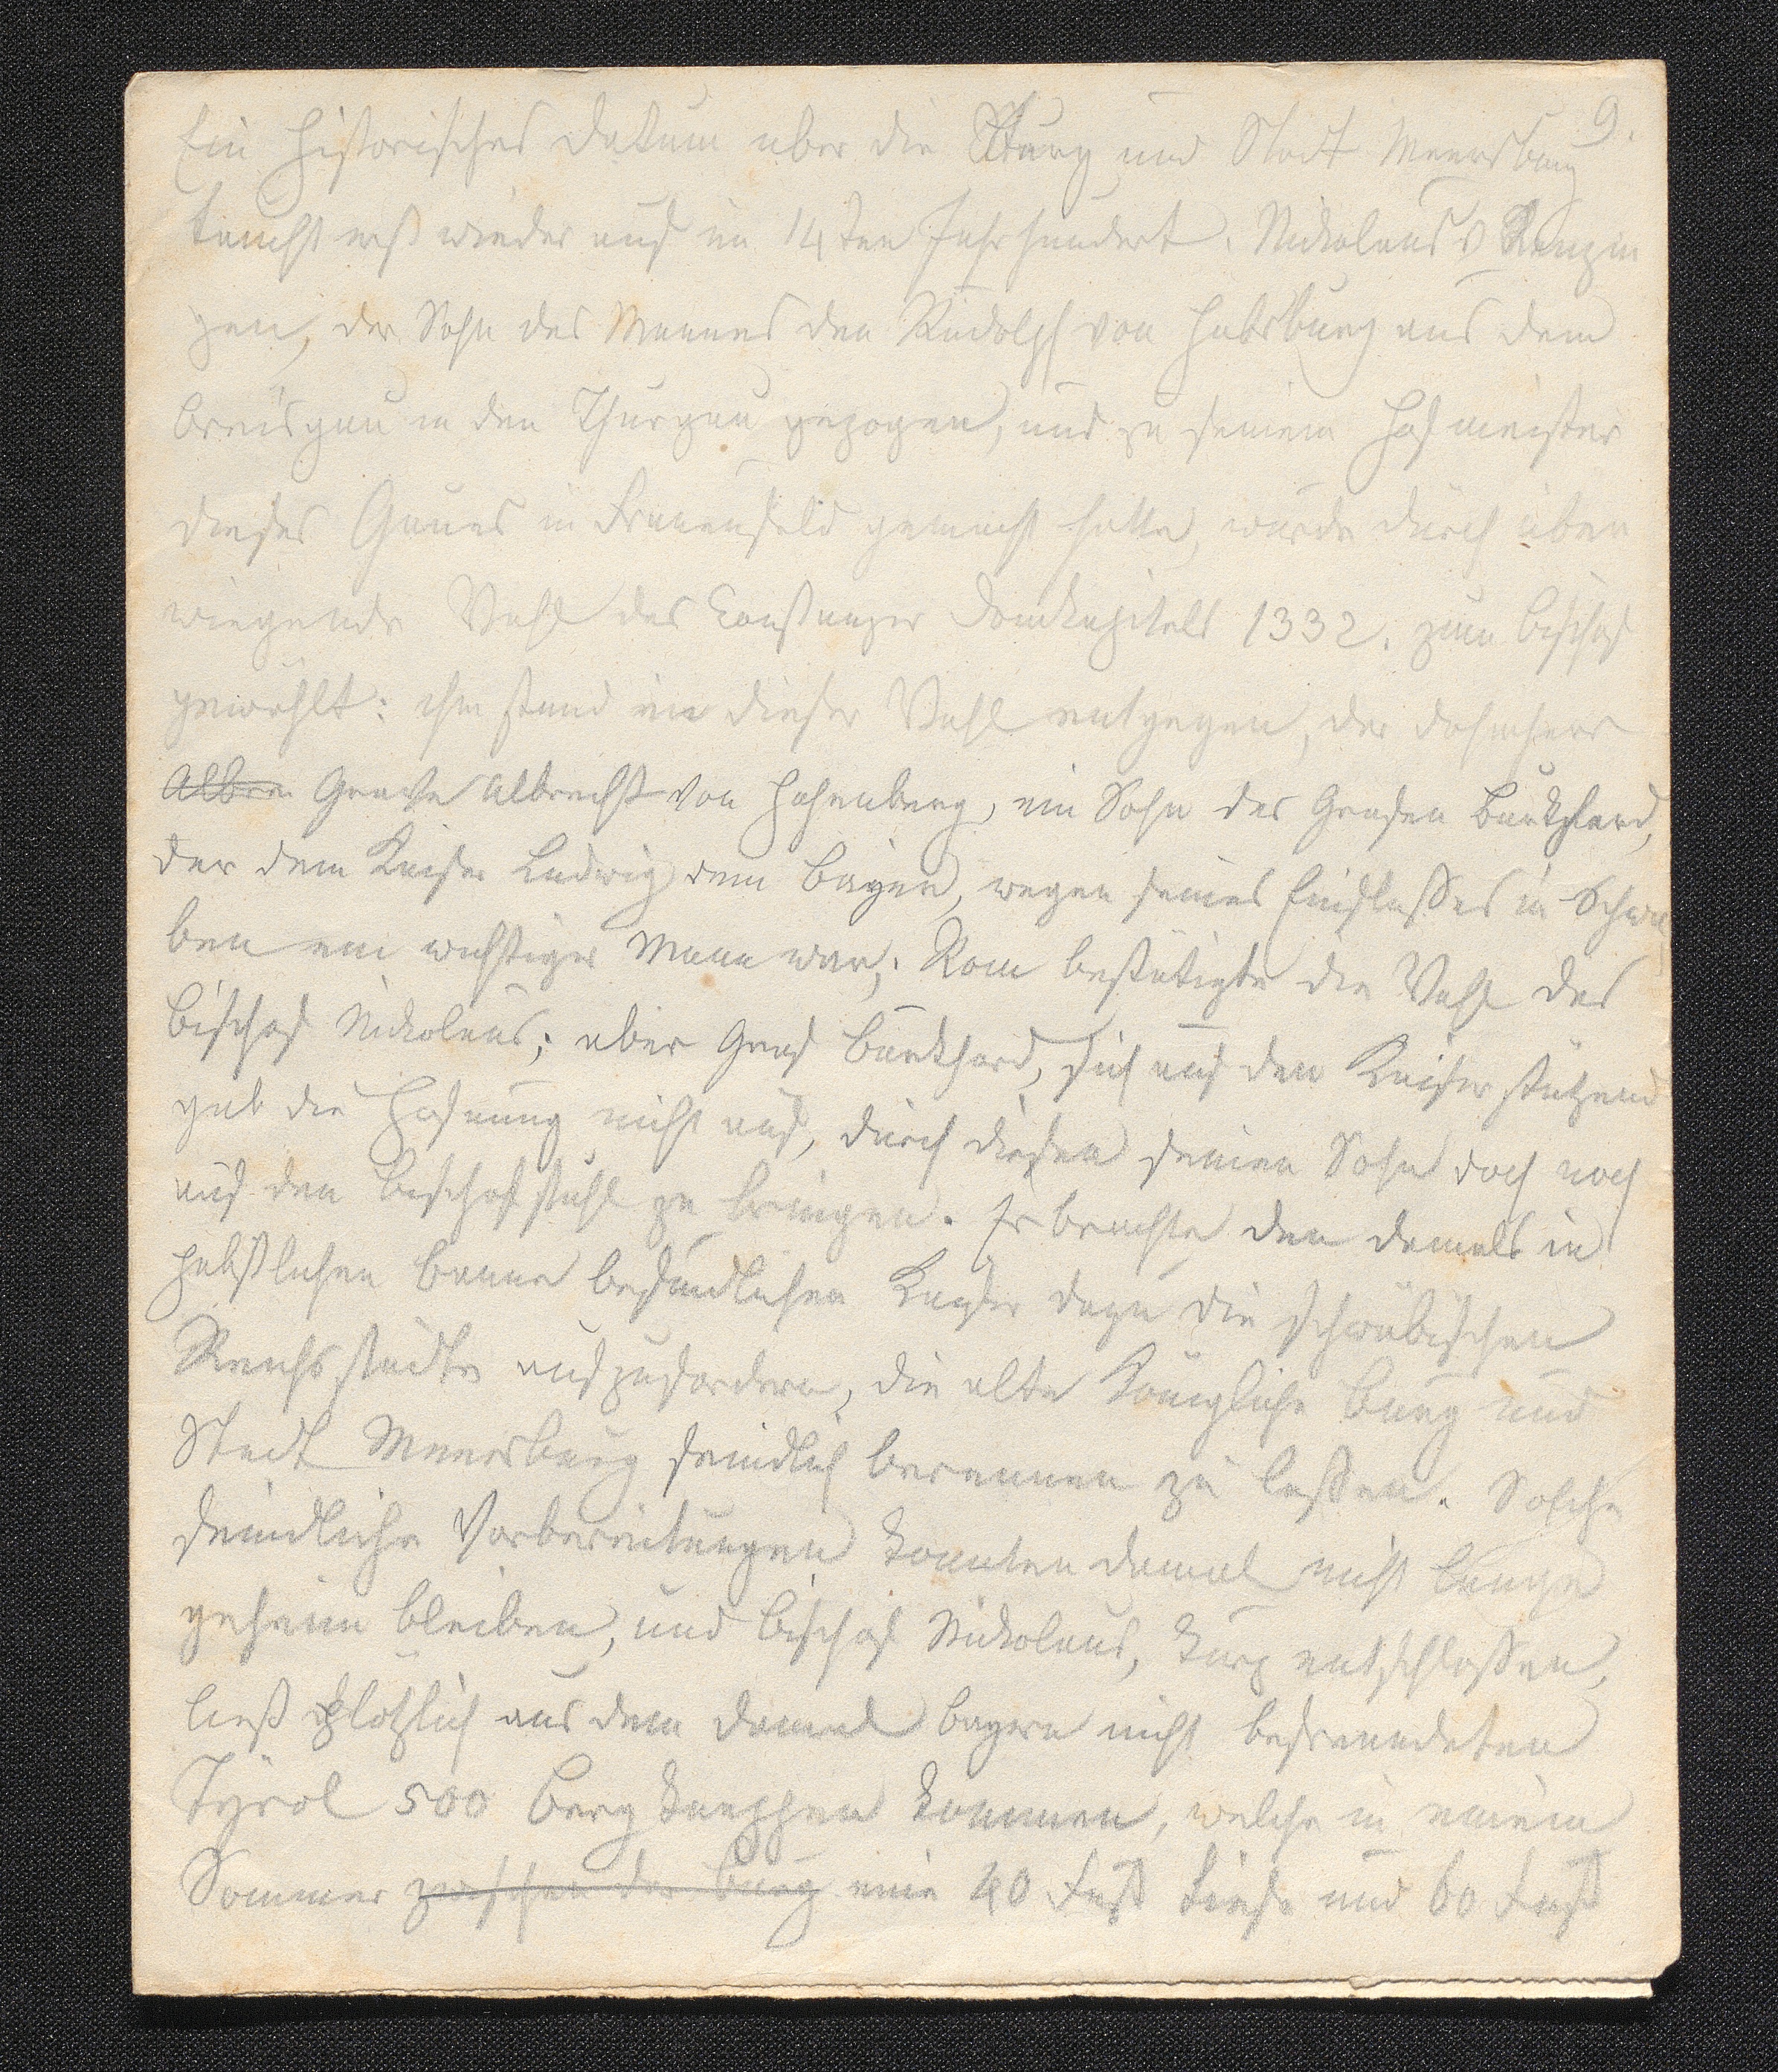 9.
Ein historisches Datum über die Burg und Stadt Meersburg
taucht erst wieder auf im 14ten Jahrhundert. Nikolaus v Kenzin
gen, der Sohn des Mannes den Rudolph von Habsburg aus dem
Breisgau in den Thurgau gezogen, und zu seinem Hofmeister
dieses Gaues in Frauenfeld gemacht hatte, wurde durch über
wiegende Wahl des Constanzer Domkapitels 1332. zum Bischof
gewählt: ihm stand in dieser Wahl entgegen, der Domherr
Albre Grave Albrecht von Hohenberg, ein Sohn des Grafen Burkhard,
der dem Kaiser Ludwig dem Bayer, wegen seines Einflußes in Schwa
ben ein wichtiger Mann war; Rom bestätigte die Wahl des
Bischof Nikolaus; aber Graf Burkhard, sich auf den Kaiser stützend
gab die Hofnung nicht auf, durch diesen seinen Sohn doch noch
auf den Bischofstuhl zu bringen. Er brachte den damals in
päbstlichen Banne befindlichen Kayser dazu die schwäbischen
Reichsstädte aufzufordern, die alte königliche Burg und
Stadt Meersburg feindlich berennen zu laßen. Solche
feindliche Vorbereitungen konnten damal nicht lange
geheim bleiben, und Bischof Nikolaus, kurz entschloßen,
ließ plötzlich aus dem damal Bayern nicht befreundeten
Tÿrol 500 Bergknappen kommen, welche in einem
Sommer zwischen der Burg eine 40 Fuß tiefe und 60 Fuß